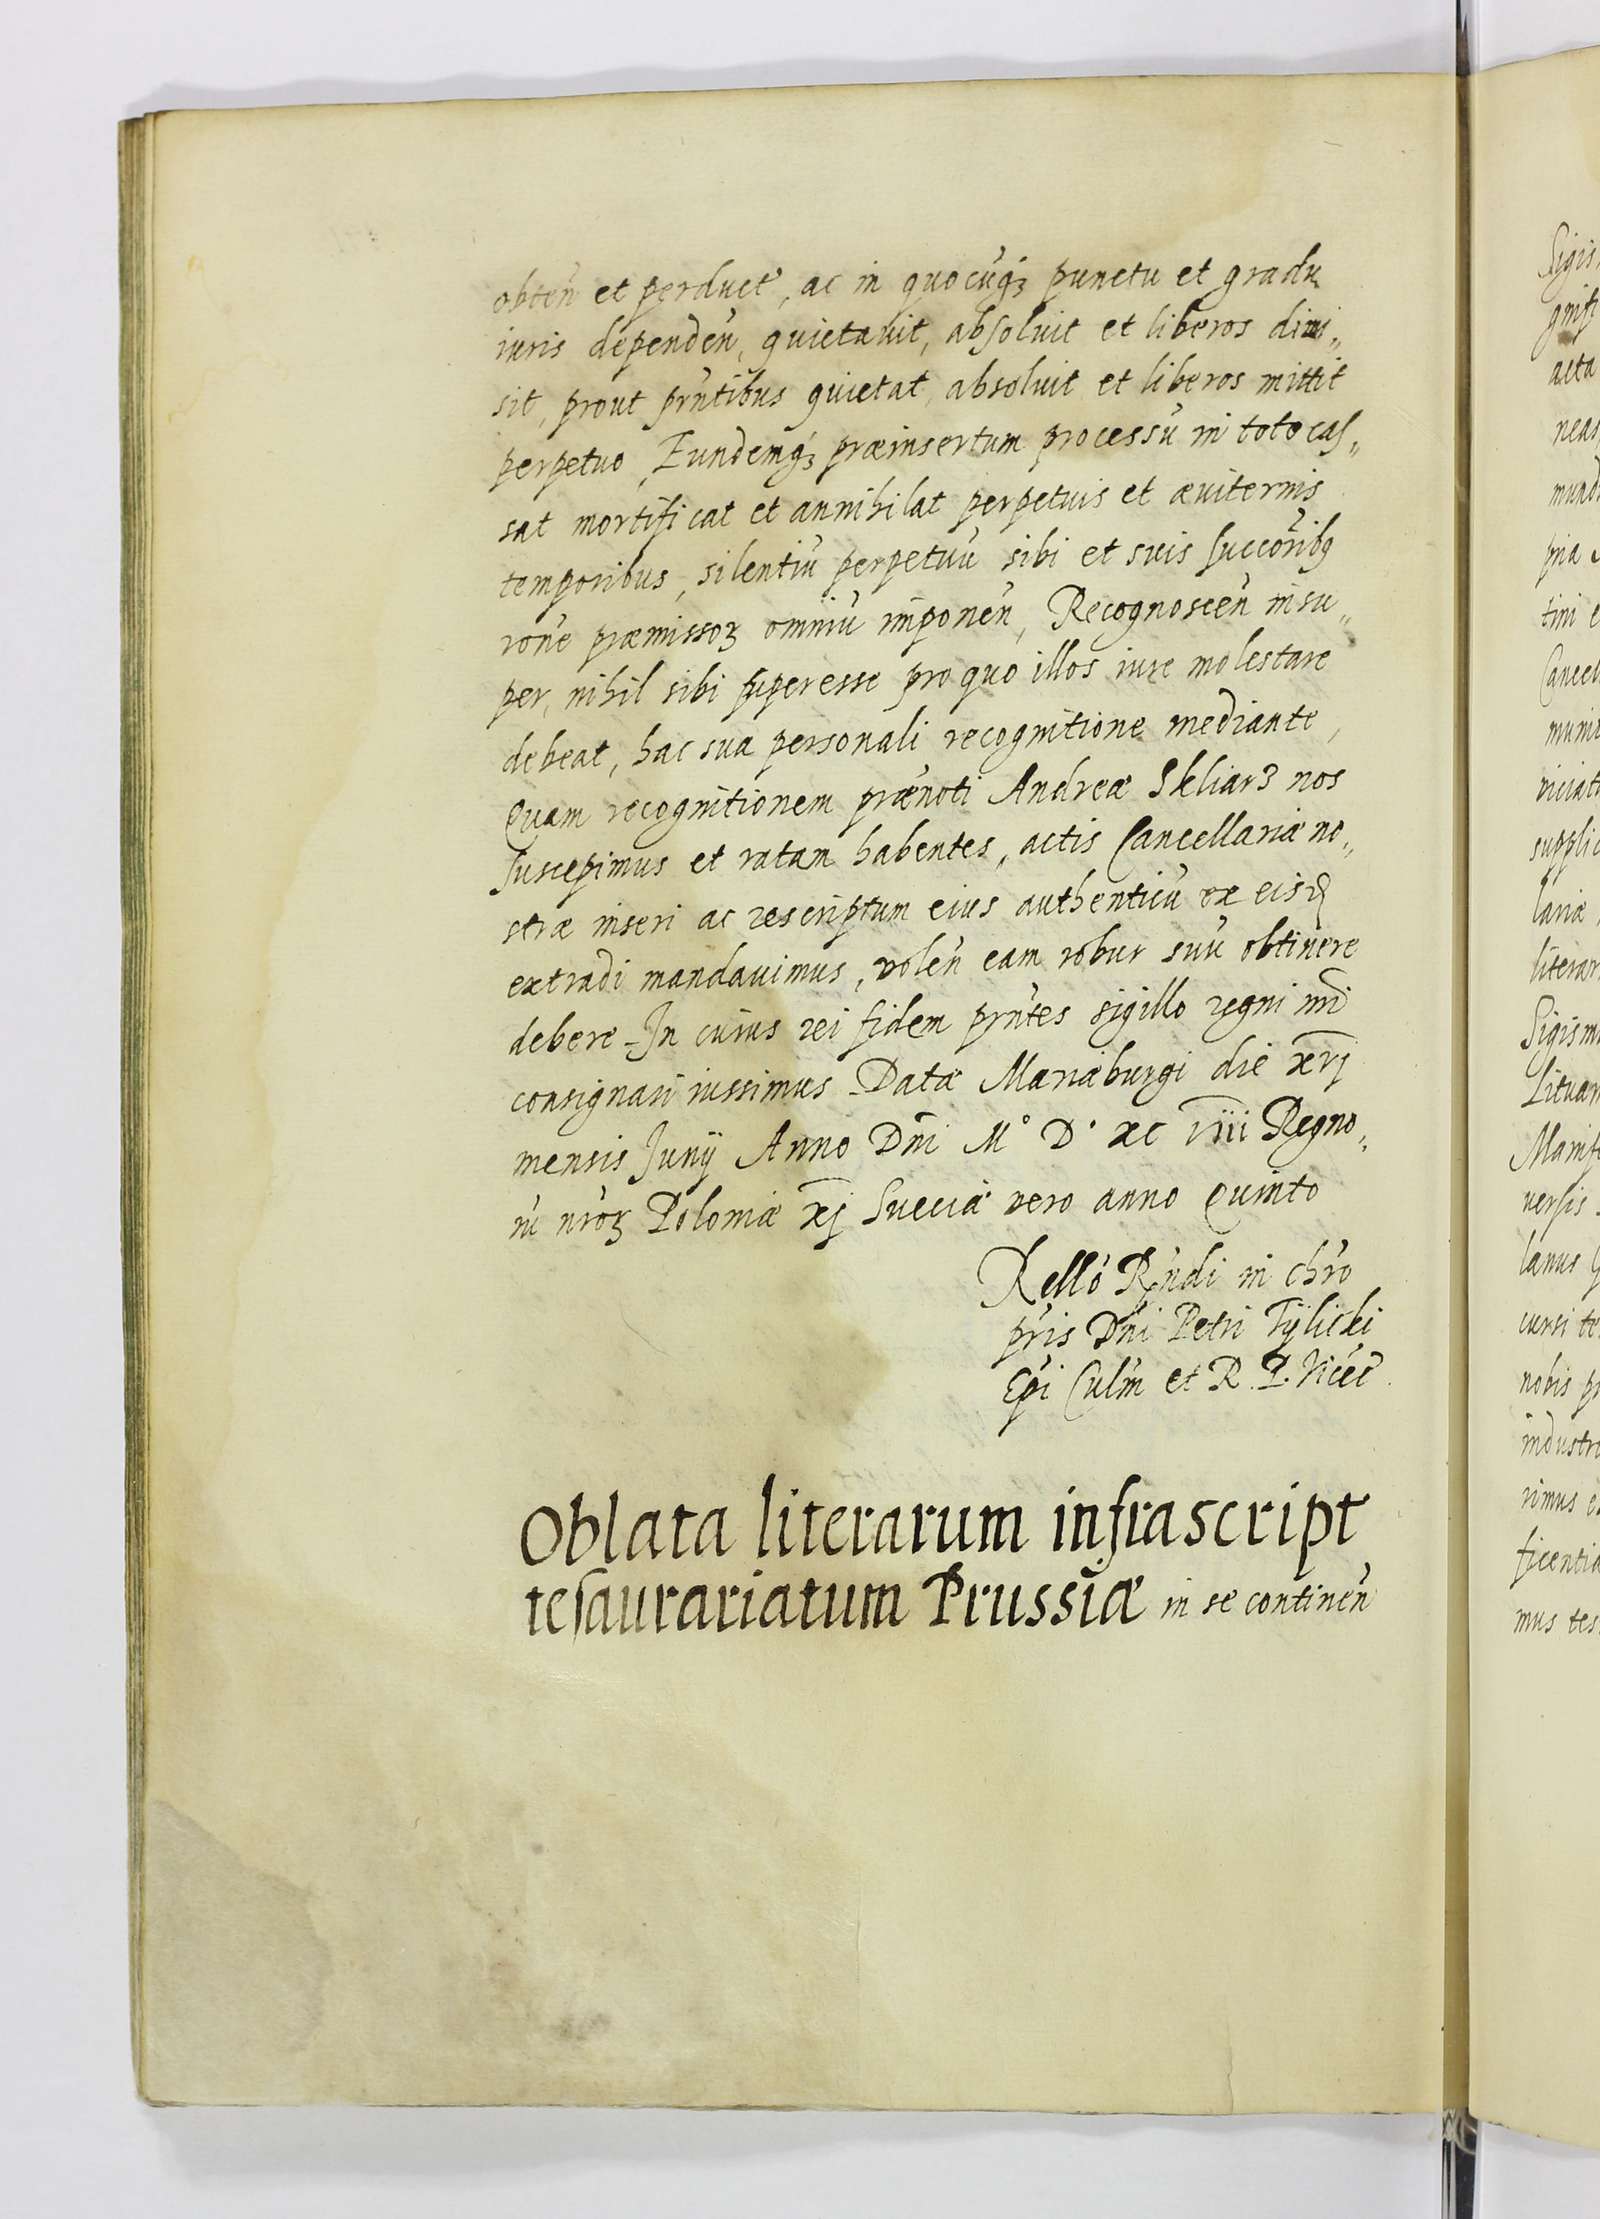 obteñ et perduct, ac in quocuq3 punctu et gradu
iuris dependeñ, quietauit, absoluit et liberos dimi„
sit, prout pñtibus quietat, absoluit et liberos mittit
perpetuo, Eundemq3 præinsertum processũ in toto cas„
sat mortificat et annihilat perpetuis et æviternis
temporibus, silentiũ perpetuũ sibi et suis succõribq
rõne præmissoꝝ omniũ imponeñ, Recognosceñ insu„
per, nihil sibi superesse pro quo illos iure molestare
debeat, hac sua personali recognitione mediante,
Quam recognitionem prænoti Andreæ Skliar3 nos
suscepimus et ratam habentes, actis Cancellariæ no„
stræ inseri ac rescriptum eius authenticũ ex eisd
extradi mandauimus, voleñ eam robur suũ obtinere
debere. In cuius rei fidem pñtes sigillo regni nr̃i
consignari iussimus. Datæ Mariæburgi die xvj
mensis Junij Anno Dñi M° D° xc viii Regno„
rũ nr̃oꝝ Poloniæ xj Sueciæ vero anno Quinto
Rellõ Rñdi in chr̃o
pr̃is Dñi Petri Tylicki
Ep̃i Culm̃ et R. P. Vicec̃
Oblata literarum infrascript
tesaurariatum Prussiæ in se contineñ
Sigis
gnifi
acta
neas
mund
pia
tini e
Cancel
muni
viciat
supplic
lariæ
literar
Sigism
Lituan
Manif
versis
lanus
cursi te
nobis pr
industr
rimus e
ficentia
mus tes